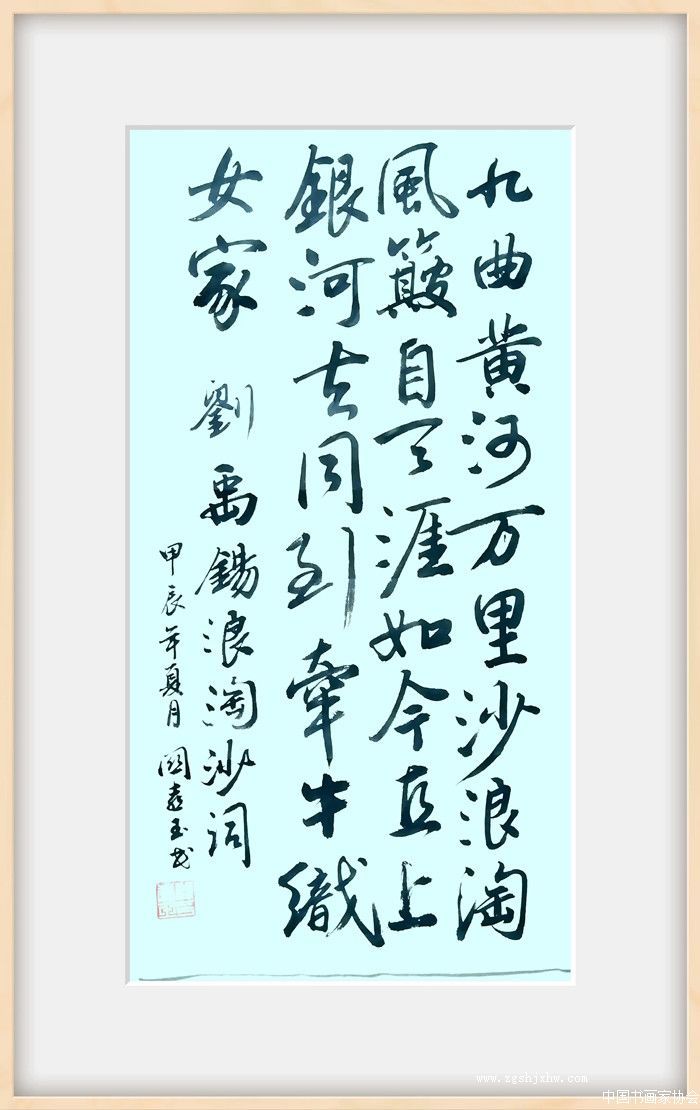 九曲黄河万里沙浪淘
風簸自天涯如今直上
銀河去同到牽牛織
女家 劉禹錫浪淘沙词
甲辰年夏月
www.zgshjxhw.com
中国书画家协会